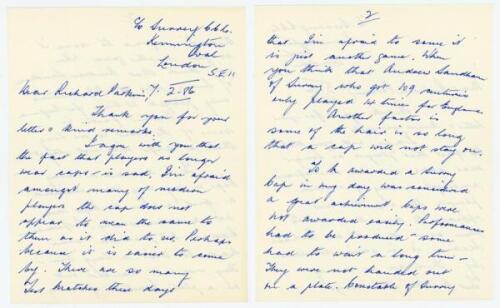 c/o Surrey C.C.C.
Kennington
Oval
London
S.E.11
Dear Richard Parkin, 7-2-86
Thank you for your
letter & kind remarks.
I agree with you that
the fact that players no longer
wear caps is sad. I'm afraid
amongst many of modern
players the cap does not
appear to mean the same to
them as it did to us. Perhaps
because it is easier to come
by. There are so many
Test matches these days
2
that I'm afraid to some it
is just another game. When
you think that Andrew Sandham
of Surrey who got 109 centuries
only played 14 times for England.
Another factor is
some of the hair is so long
that a cap will not stay on.
To be awarded a Surrey
Cap in my day was considered
a great achievement. Caps were
not awarded easily. Performances
had to be produced - some
had to wait a long time -
They were not handed out
on a plate. Constable of Surrey